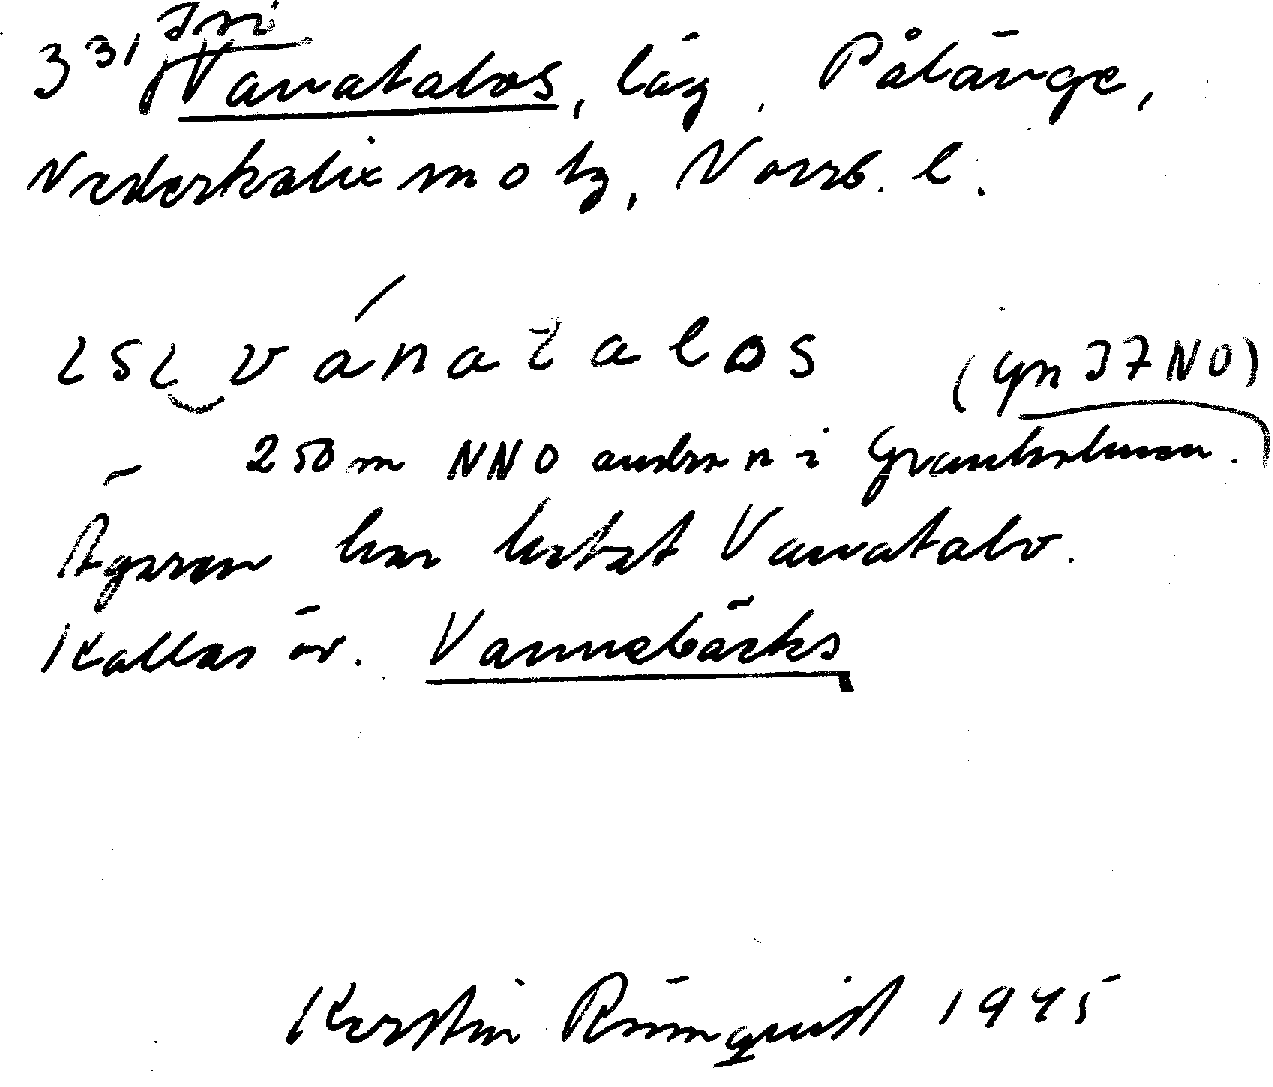 Isi
331 Vanatalos, läg. Pålänge,
Nederkalix m o tg, Norrb. l.
ɩsɩ‿vánatalos (gn 37 NO)
250 m NNO andra n i Granholmen.
Ägaren har hetat Vanatalo.
Kallas äv. Vannebäcks
Kerstin Rönnquist 1945